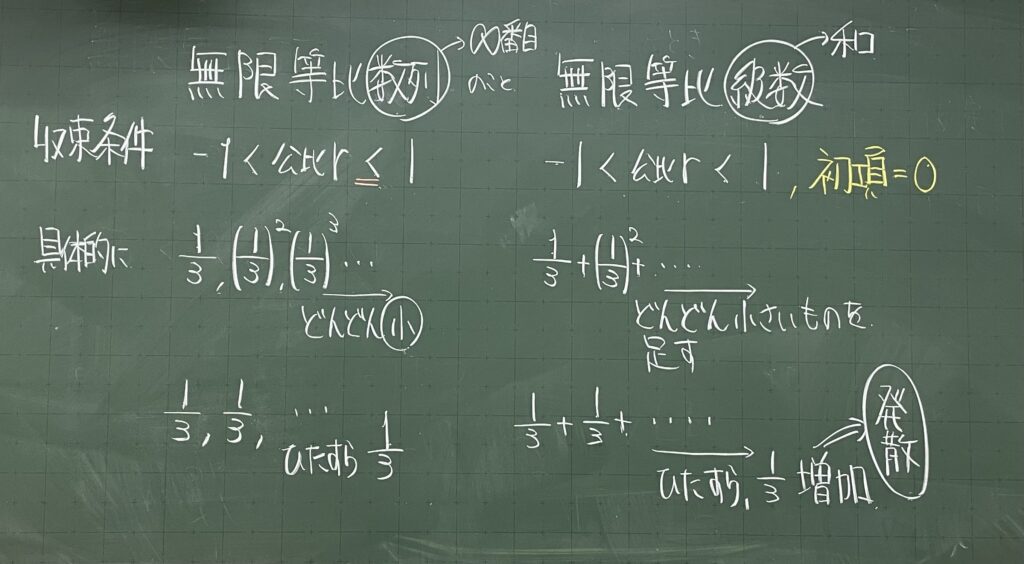 無限等比数列 → ∞番目のこと
無限等比級数 → 和
収束条件 -1 < 公比r ≦ 1
-1 < 公比r < 1, 初項=0
具体的に 1/3, (1/3)², (1/3)³ …
どんどん小
1/3 + (1/3)² + ‥‥
どんどん小さいものを
足す
1/3, 1/3, …
ひたすら 1/3
1/3 + 1/3 + ‥‥
ひたすら, 1/3 増加 → 発散